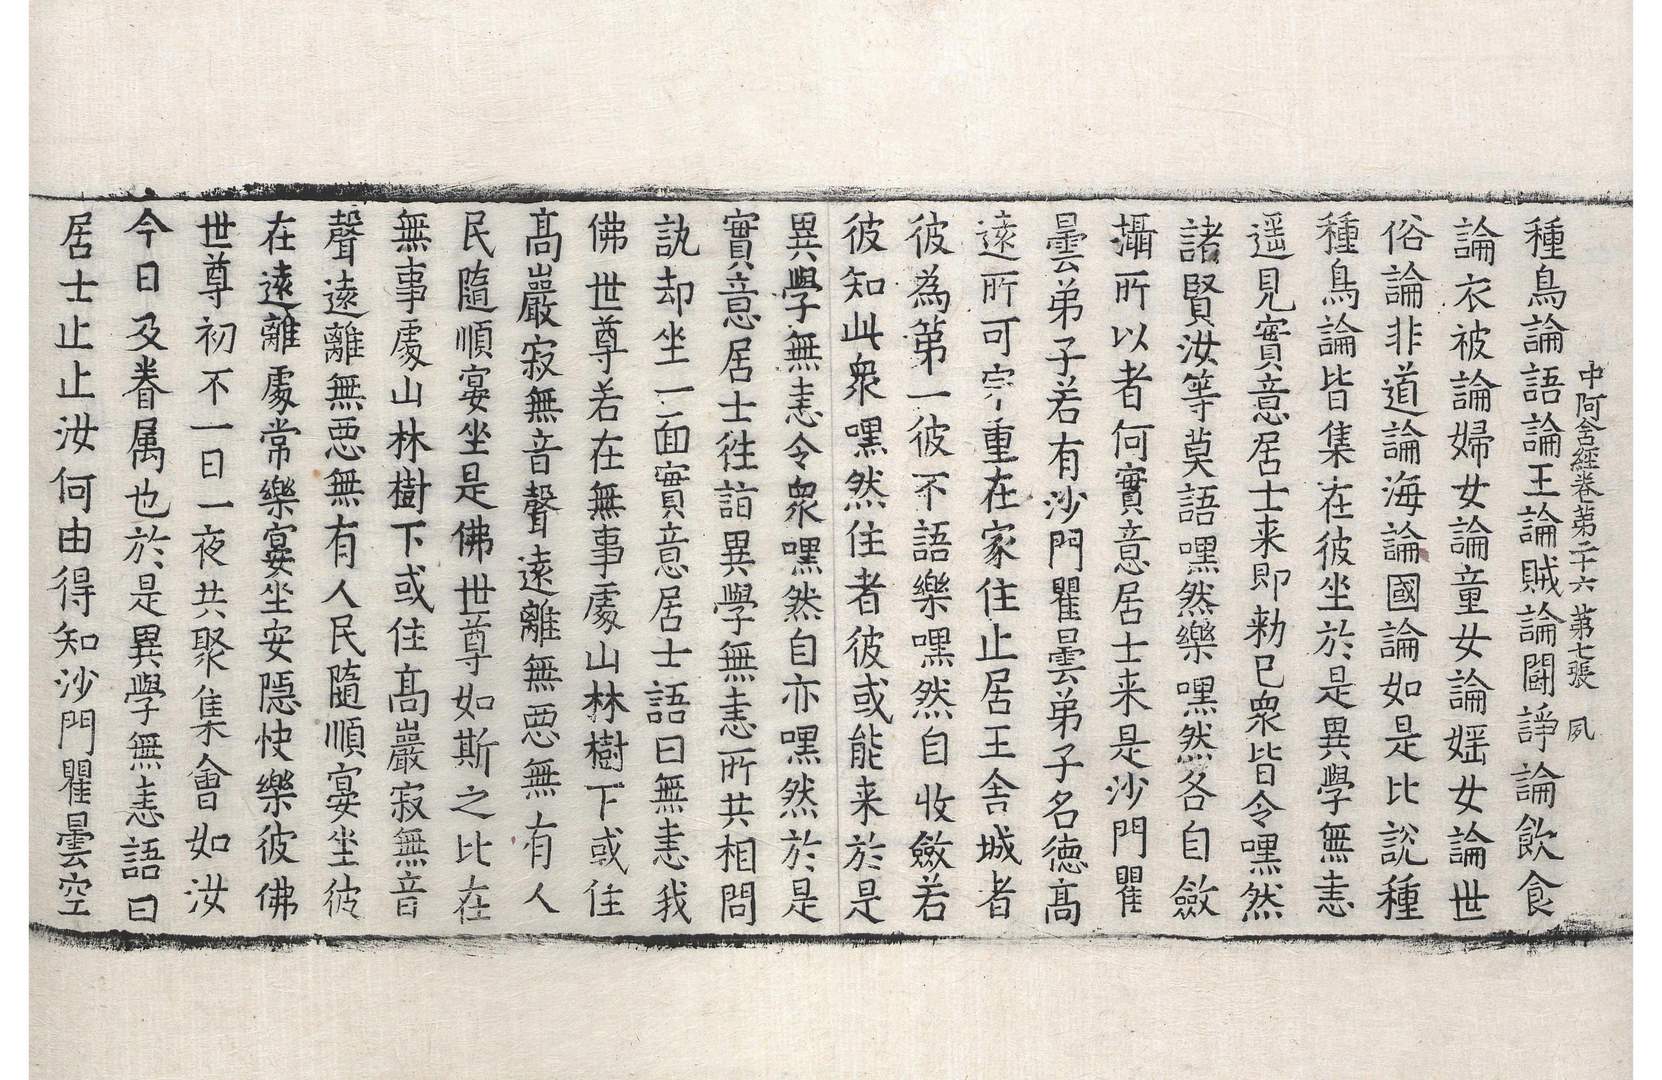 中阿含經卷第二十六 第七張 夙
種鳥論語論王論賊論鬪諍論飲食
論衣被論婦女論童女論婬女論世
俗論非道論海論國論如是比說種
種鳥論皆集在彼坐於是異學無恚
遥見實意居士来即勑已衆皆令嘿然
諸賢汝等莫語嘿然樂嘿然各自斂
攝所以者何實意居士来是沙門瞿
曇弟子若有沙門瞿曇弟子名德高
遠所可宗重在家住止居王舎城者
彼為第一彼不語樂嘿然自收斂若
彼知此衆嘿然住者彼或能来於是
異學無恚令衆嘿然自亦嘿然於是
實意居士往詣異學無恚所共相問
訊却坐一面實意居士語曰無恚我
佛世尊若在無事處山林樹下或住
高巖寂無音聲遠離無惡無有人
民隨順宴坐是佛世尊如斯之比在
無事處山林樹下或住高巖寂無音
聲遠離無惡無有人民隨順宴坐彼
在遠離處常樂宴坐安隱快樂彼佛
世尊初不一日一夜共聚集會如汝
今日及眷属也於是異學無恚語曰
居士止止汝何由得知沙門瞿曇空